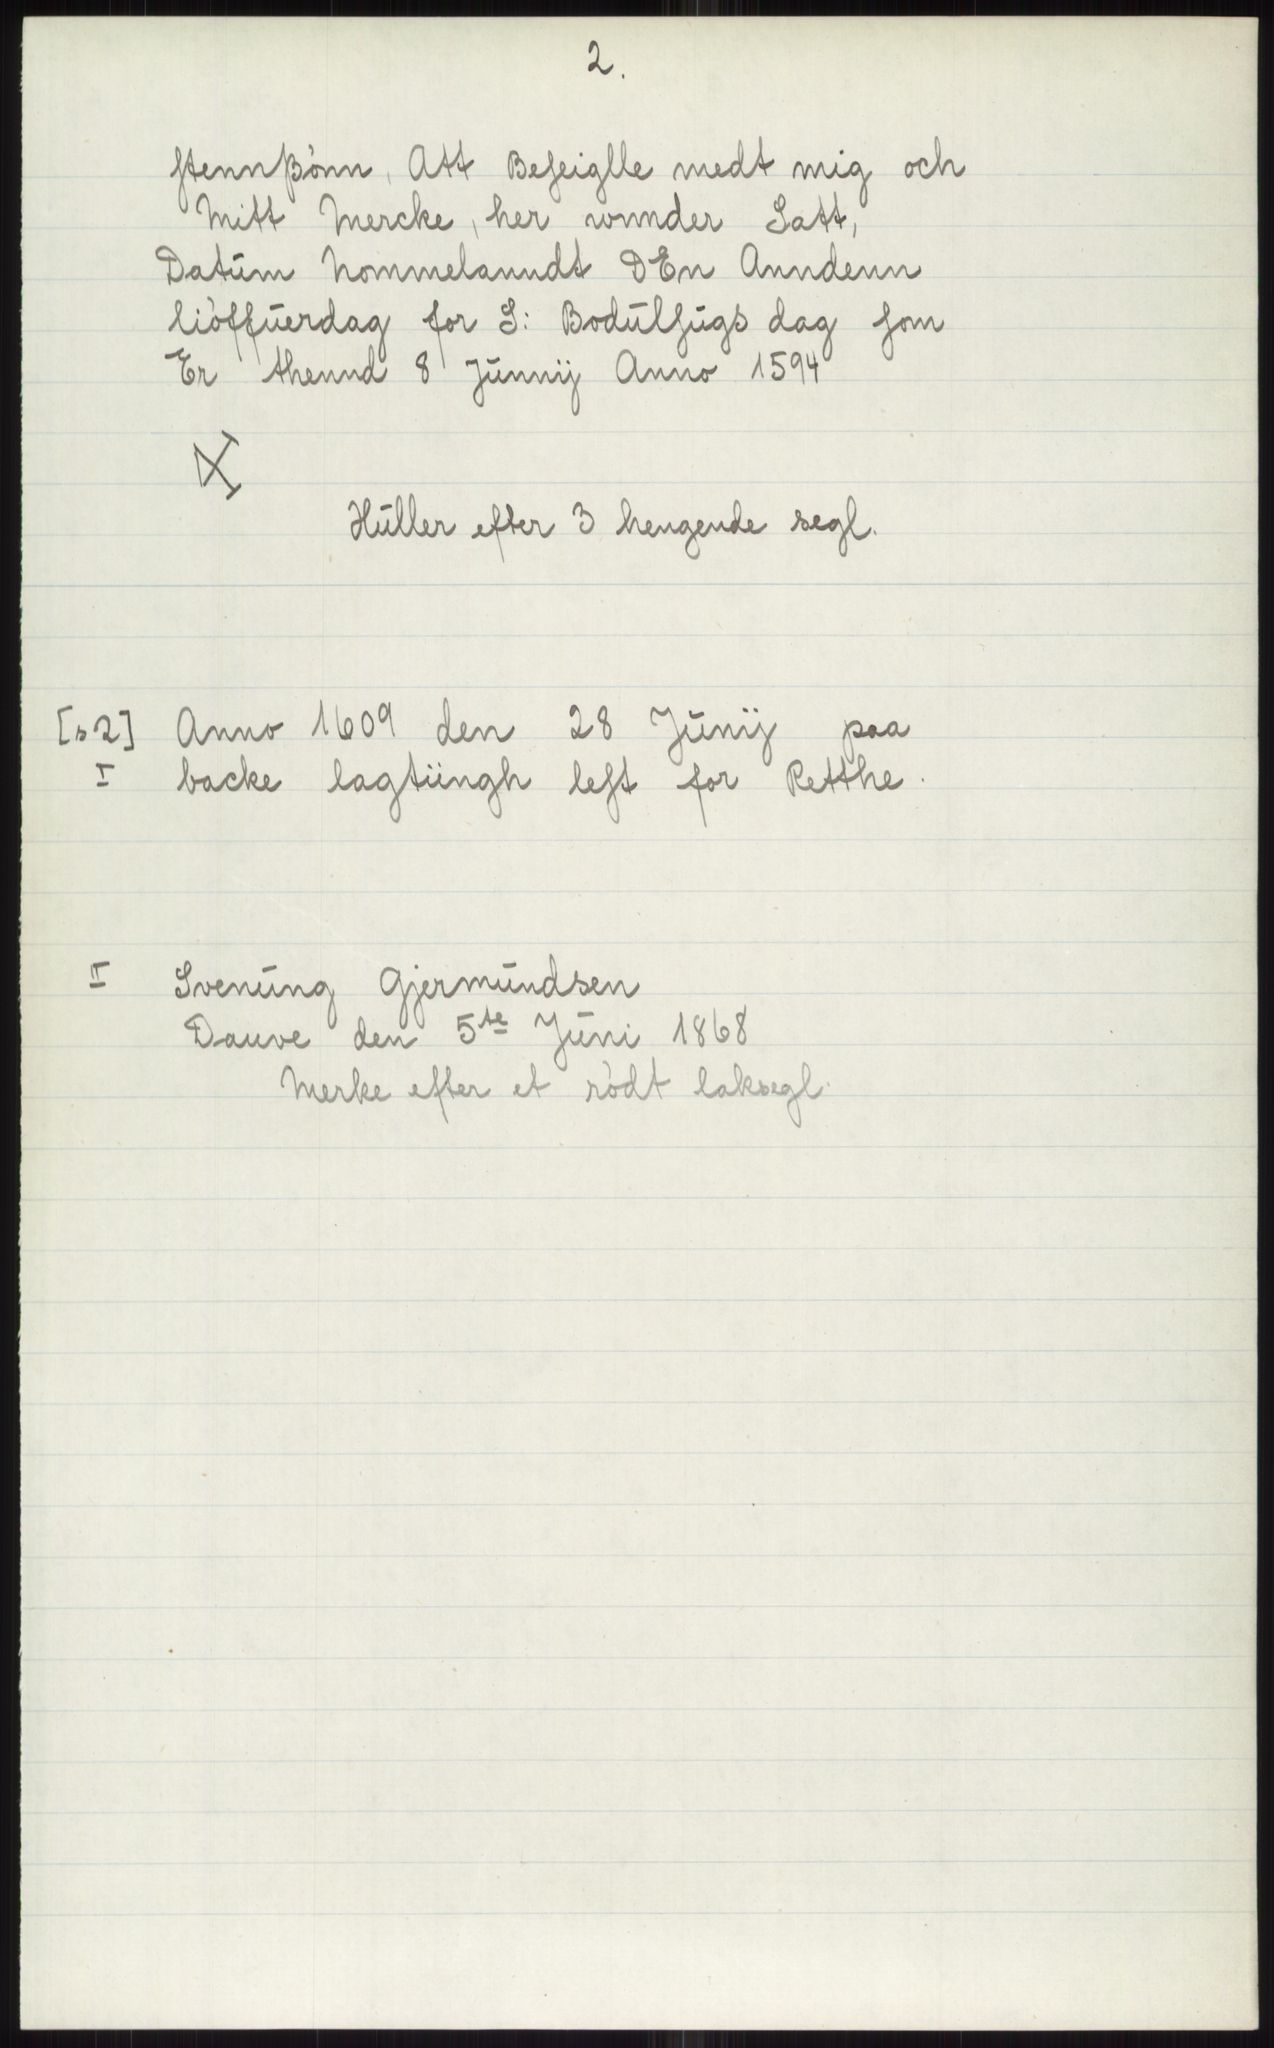 2.
ſtennßönn, Att Beſeiglle medt mig och
Mitt Mercke, her wnnder Satt,
Datūm Nommelanndt DEn Anndenn
liöffūerdag for S: Bodūlſūgs dag ſom
Er thennd 8 Jūnnÿ Anno 1594
Hūller efter 3 hengende segl.
[s 2] Anno 1609 den 28 Jūnÿ paa
I backe lagtiingh leſt for Retthe.
II Svenūng Gjermūndsen
Dauve den 5te Jūni 1868
Merke efter et rödt laksegl.